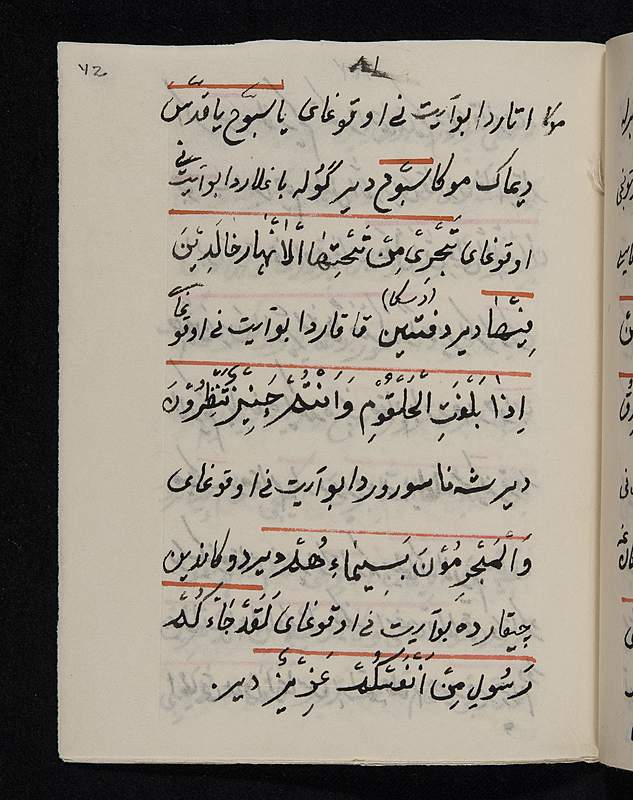 ٧٢
موکا اتاردا بوآیت نی اوقوغای یا سبّوح یا قدّس
دیماک موکا سبّوح دیر گوُله باغلاردا بوآیت نی
اوقوغای تَجْرِیْ مِنْ تَحْتِهَا الْاَنْهَار خَالِدِیْنَ
فِیْهَا دیر دفتین (دسکا) قاقاردا بوآیت نی اوقوغای
اِذَا بَلَغَتِ الْحَلْقُوْمِ وَاَنْتُمْ حِنِیْئِذٍ تَنْظُرُوْنَ
دیر شه نا سوروردا بوآیت نی اوقوغای
وَالْمُجْرِمُوْنَ بَسِیْمَاءِ هُمْ دیر دوکاندین
چیقارده بوآیت نی اوقوغای لَقَدْ جَاءَ کُمْ
رَسُوْلٍ مِنْ اَنْفُسِکُمْ عَزِیْزٌ دیر.